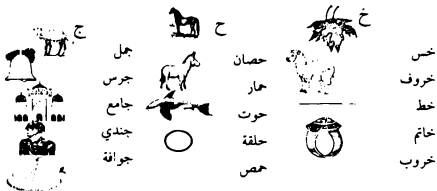 خ
خس
خروف
خط
خاتم
خروب
ح
حصان
حمار
حوت
حلقة
حمص
ج
جمل
جرس
جامع
جندي
جوافة